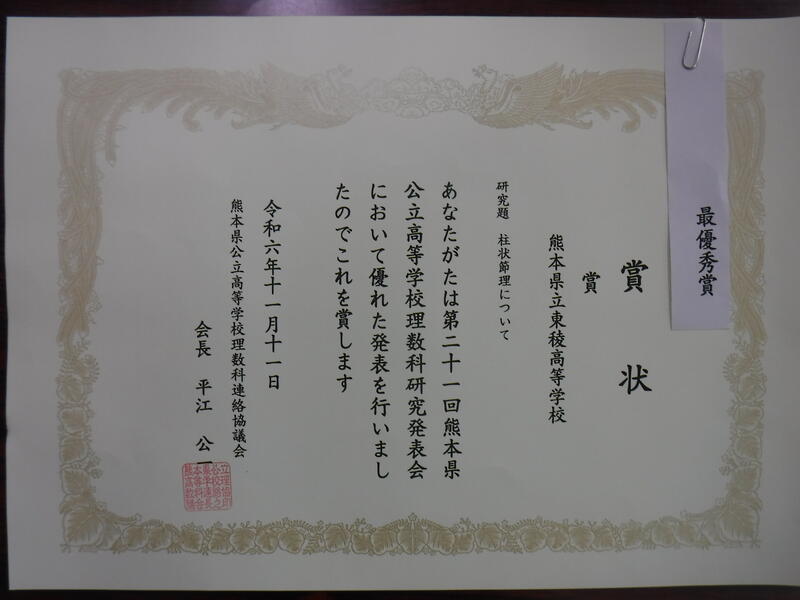 最優秀賞
賞状
賞
熊本県立東稜高等学校
研究題 柱状節理について
あなたがたは第二十一回熊本県
公立高等学校理数科研究発表会
において優れた発表を行いまし
たのでこれを賞します
令和六年十一月十一日
熊本県公立高等学校理数科連絡協議会
会長 平江 公一